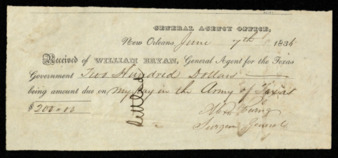 GENERAL AGENCY OFFICE,
New Orleans, June 7th 1836
Received of WILLIAM BRYAN, General Agent for the Texas
Government Two Hundred Dollars
being amount due on my pay in the Army of Texas
$200.00
Surgeon General
Settled